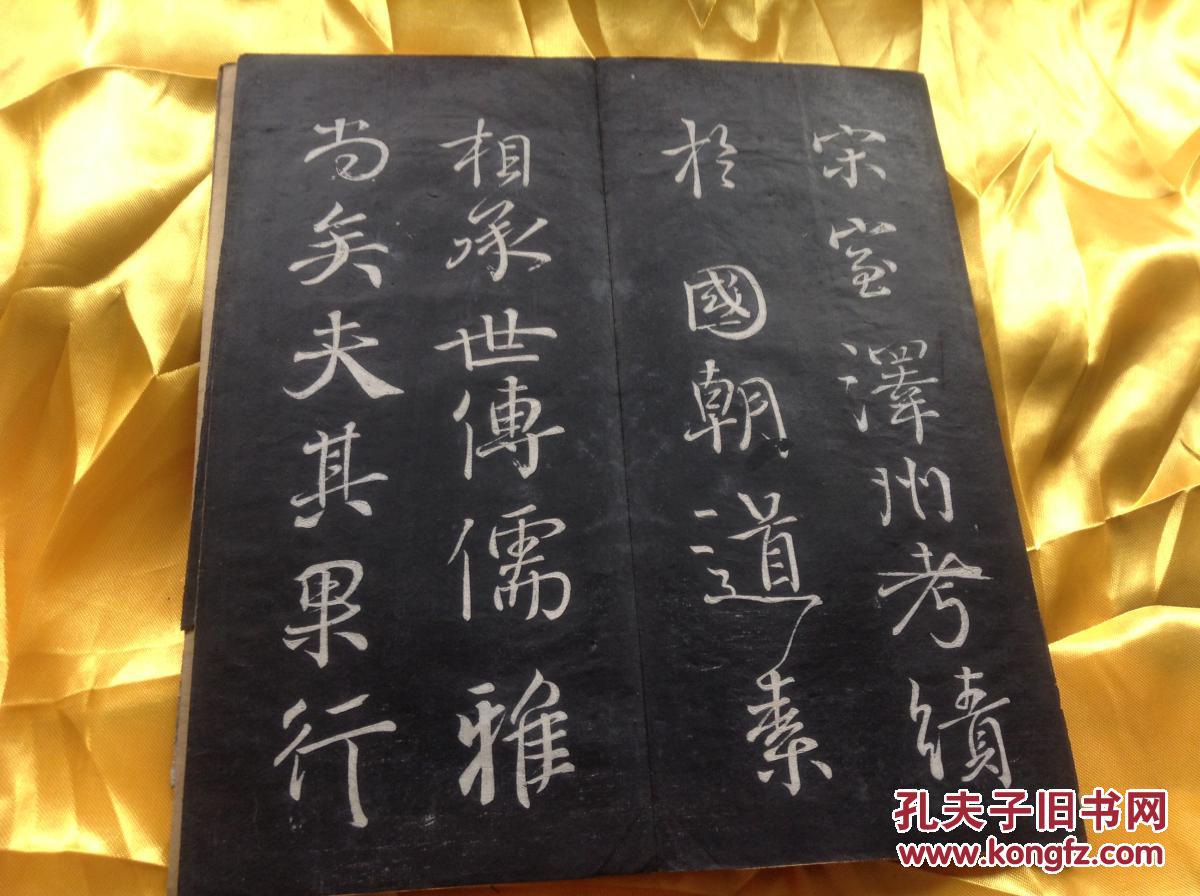 宋室澤州考績
於國朝道素
相承世傳儒雅
尚矣夫其果行
孔夫子旧书网
www.kongfz.com